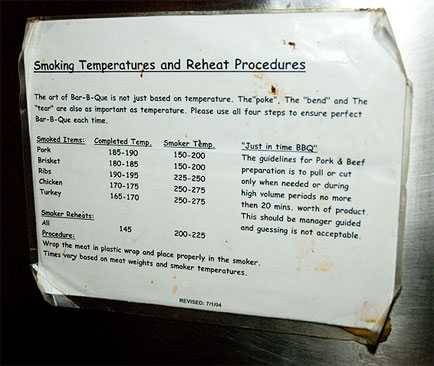 Smoking Temperatures and Reheat Procedures
The art of Bar-B-Que is not just based on temperature. The"poke", The "bend" and The
"tear" are also as important as temperature. Please use all four steps to ensure perfect
Bar-B-Que each time.
Smoked Items: Completed Temp. Smoker Temp.
Pork 185-190 150-200
Brisket 180-185 150-200
Ribs 190-195 225-250
Chicken 170-175 250-275
Turkey 165-170 250-275
"Just in time BBQ"
The guidelines for Pork & Beef
preparation is to pull or cut
only when needed or during
high volume periods no more
then 20 mins. worth of product.
This should be manager guided
and guessing is not acceptable.
Smoker Reheats:
All 145 200-225
Procedure:
Wrap the meat in plastic wrap and place properly in the smoker.
Times vary based on meat weights and smoker temperatures.
REVISED: 7/1/04